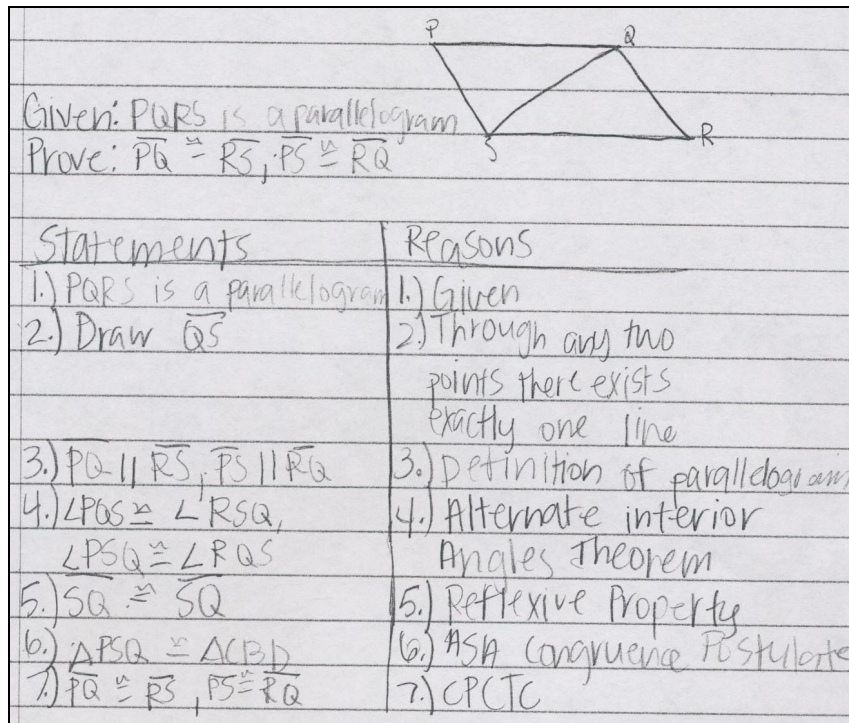 P Q
Given: PQRS is a parallelogram
S R
Prove: PQ ≅ RS, PS ≅ RQ
Statements Reasons
1.) PQRS is a parallelogram 1.) Given
2.) Draw QS 2.) Through any two
points there exists
exactly one line
3.) PQ || RS, PS || RQ 3.) Definition of parallelogram
4.) ∠PQS ≅ ∠RSQ, 4.) Alternate interior
∠PSQ ≅ ∠RQS Angles Theorem
5.) SQ ≅ SQ 5.) Reflexive Property
6.) △PSQ ≅ △CBD 6.) ASA Congruence Postulate
7.) PQ ≅ RS, PS ≅ RQ 7.) CPCTC